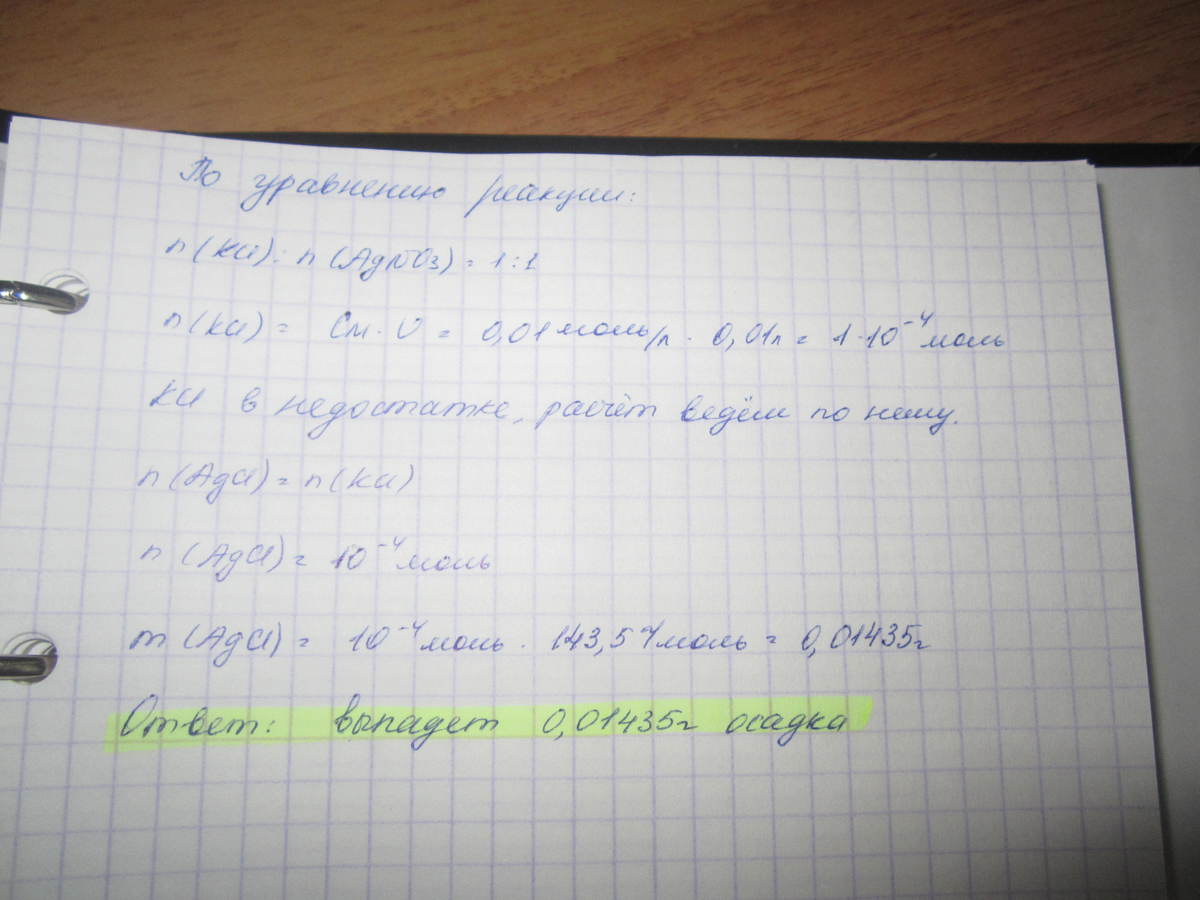 По уравнению реакции:
n(KCl):n(AgNO3)=1:1
n(KCl)= Cм·V = 0,01моль/л · 0,01л= 1·10⁻⁴моль
KCl в недостатке, расчёт ведём по нему.
n(AgCl)=n(KCl)
n(AgCl)= 10⁻⁴моль
m(AgCl)= 10⁻⁴моль · 143,5г/моль = 0,01435г
Ответ: выпадет 0,01435г осадка